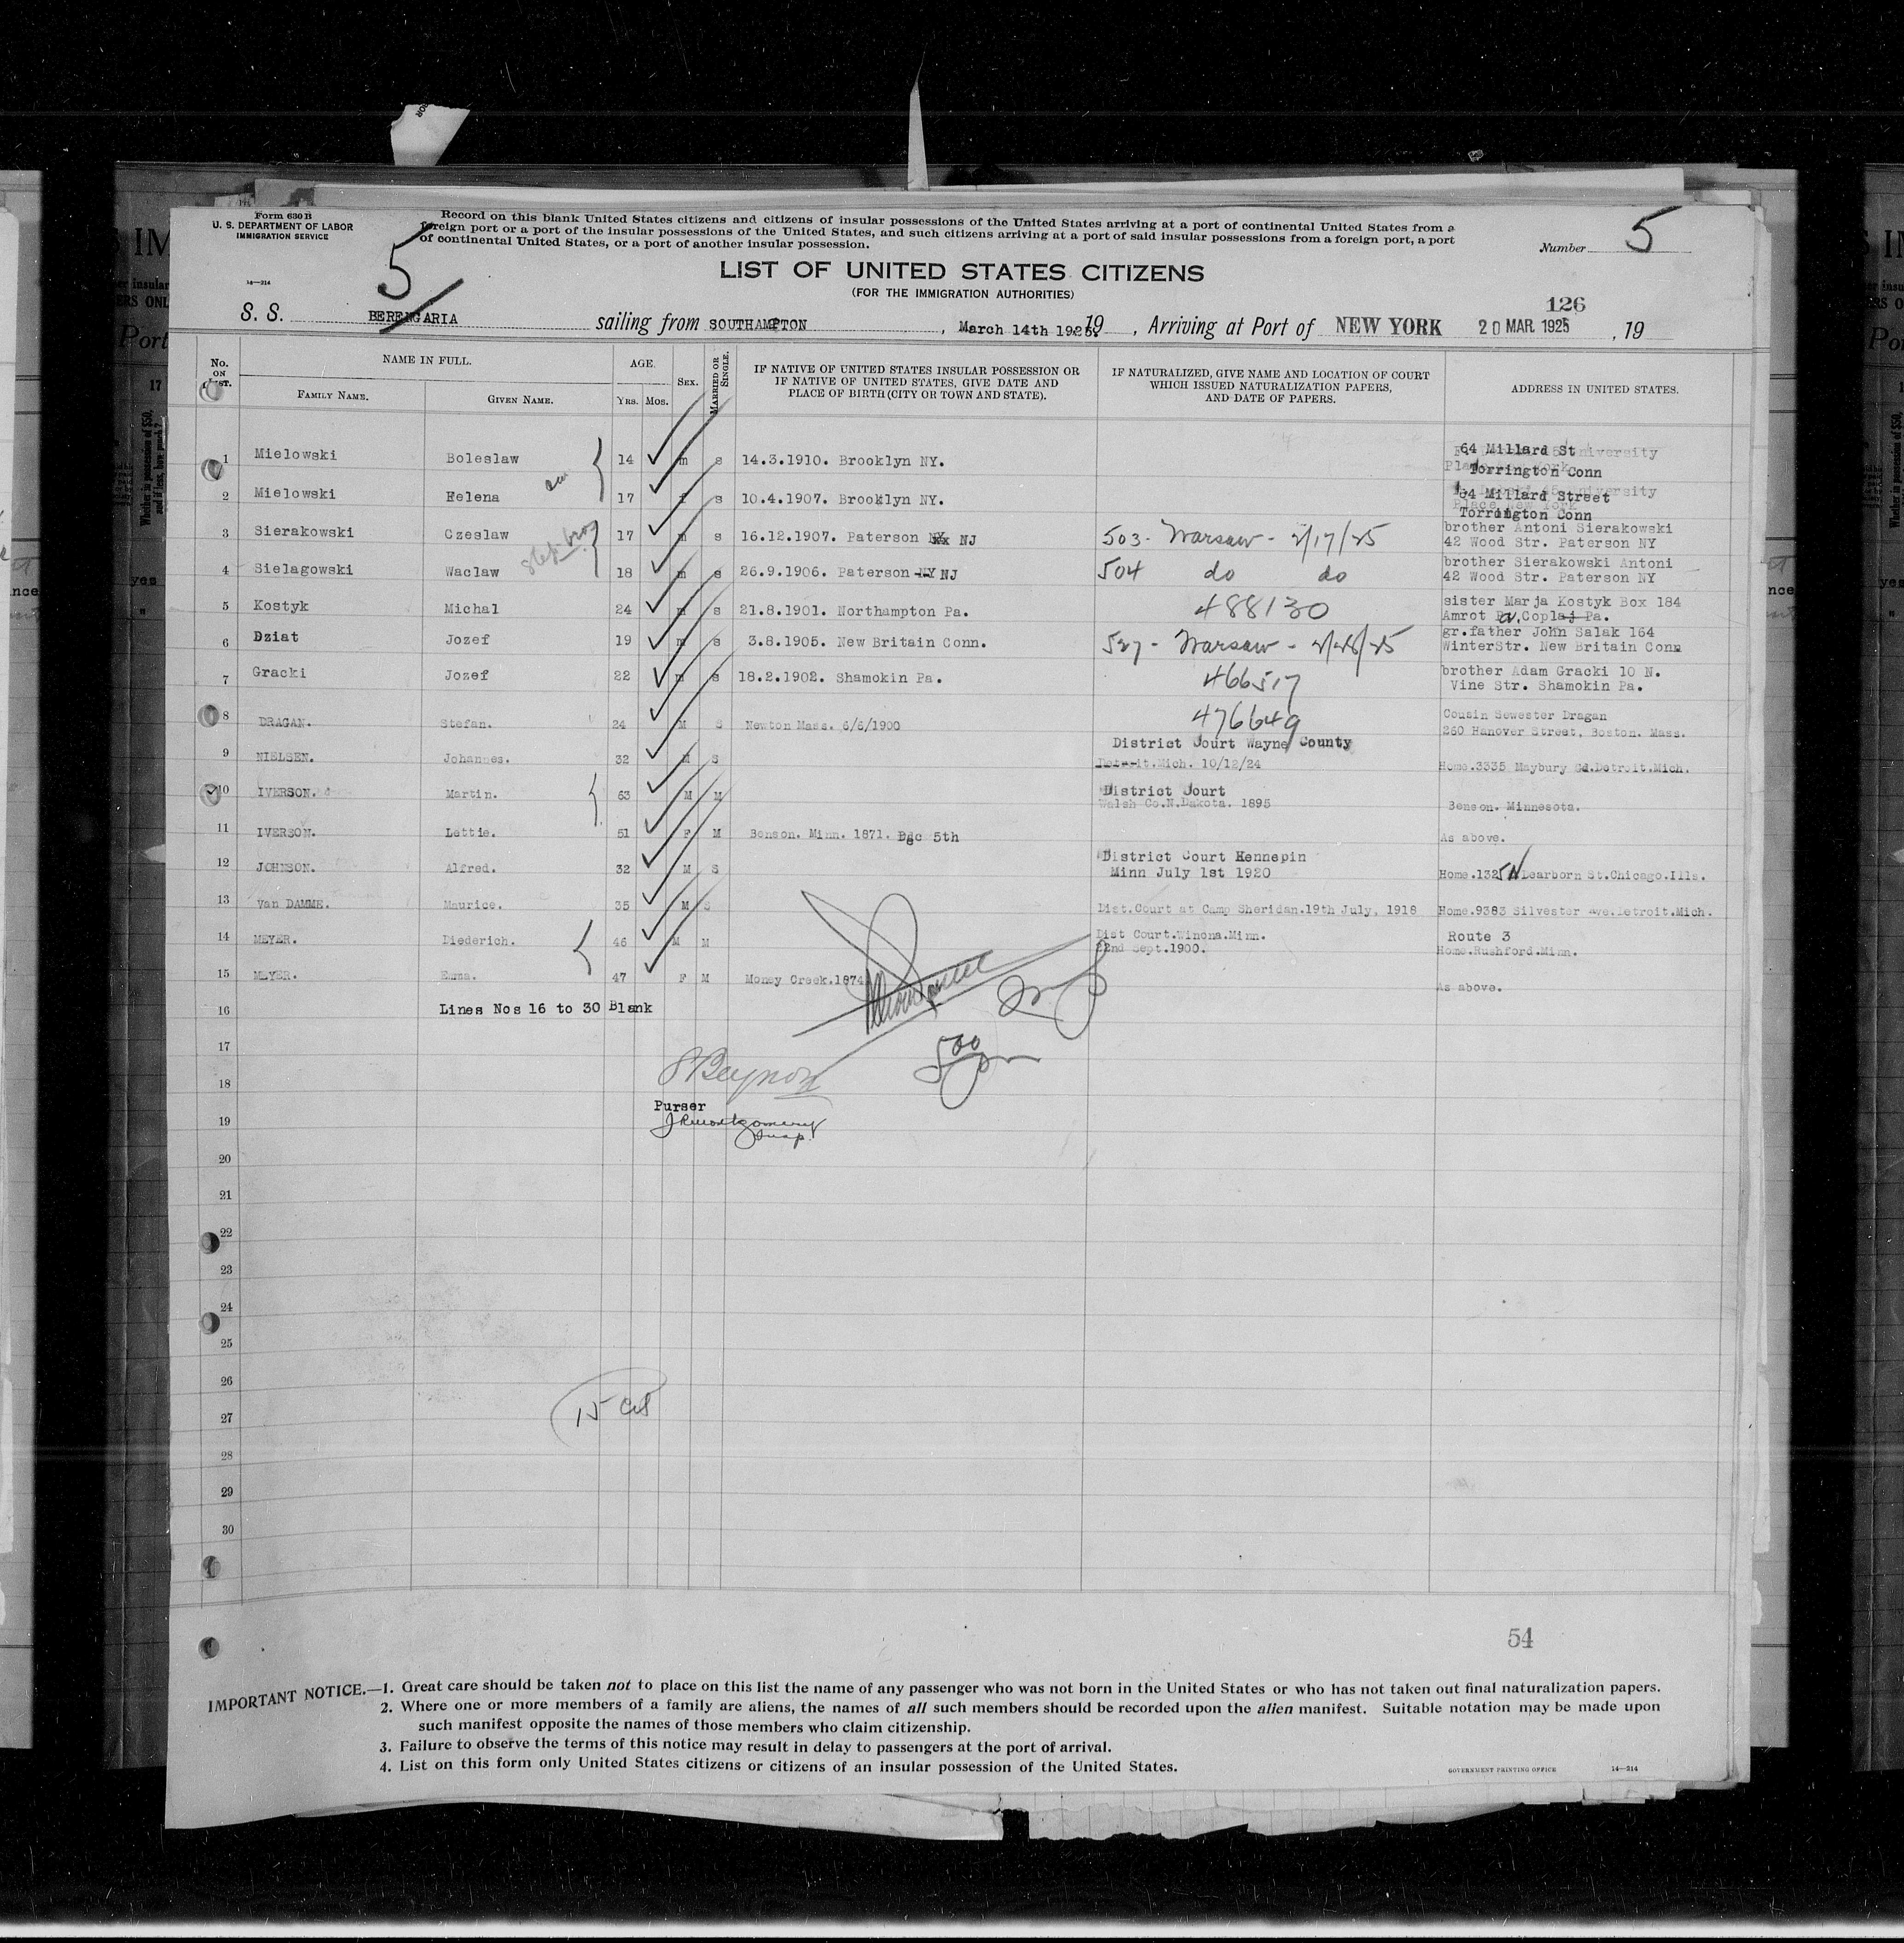 Form 630 B
U. S. DEPARTMENT OF LABOR
IMMIGRATION SERVICE
14—214
5
Record on this blank United States citizens and citizens of insular possessions of the United States arriving at a port of continental United States from a
foreign port or a port of the insular possessions of the United States, and such citizens arriving at a port of said insular possessions from a foreign port, a port
of continental United States, or a port of another insular possession.
Number 5
LIST OF UNITED STATES CITIZENS
(FOR THE IMMIGRATION AUTHORITIES)
126
S. S. BERENGARIA sailing from SOUTHAMPTON, March 14th 1925. 19 , Arriving at Port of NEW YORK 20 MAR 1925 , 19
No. ON LIST. NAME IN FULL. AGE. SEX. MARRIED OR SINGLE. IF NATIVE OF UNITED STATES INSULAR POSSESSION OR IF NATIVE OF UNITED STATES, GIVE DATE AND PLACE OF BIRTH (CITY OR TOWN AND STATE). IF NATURALIZED, GIVE NAME AND LOCATION OF COURT WHICH ISSUED NATURALIZATION PAPERS, AND DATE OF PAPERS. ADDRESS IN UNITED STATES.
FAMILY NAME. GIVEN NAME. YRS. MOS.
1 Mielowski Boleslaw 14 m s 14.3.1910. Brooklyn NY. 64 Millard St
Torrington Conn
2 Mielowski Helena 17 f s 10.4.1907. Brooklyn NY. 64 Millard Street
Torrington Conn
3 Sierakowski Czeslaw step-bros 17 m s 16.12.1907. Paterson NY NJ 503 - Warsaw - 2/17/25 brother Antoni Sierakowski
42 Wood Str. Paterson NY
4 Sielagowski Waclaw 18 m s 26.9.1906. Paterson NY NJ 504 do do brother Sierakowski Antoni
42 Wood Str. Paterson NY
5 Kostyk Michal 24 m s 21.8.1901. Northampton Pa. 488130 sister Marja Kostyk Box 184
Amrot Coplaj Pa.
6 Dziat Jozef 19 m s 3.8.1905. New Britain Conn. 527 - Warsaw - 2/28/25 gr.father John Salak 164
WinterStr. New Britain Conn
7 Gracki Jozef 22 m s 18.2.1902. Shamokin Pa. 466517 brother Adam Gracki 10 N.
Vine Str. Shamokin Pa.
8 DRAGAN. Stefan. 24 M S Newton Mass. 6/6/1900 476649 Cousin Sewester Dragan
260 Hanover Street, Boston. Mass.
9 NIELSEN. Johannes. 32 M S District Court Wayne County
Detroit.Mich. 10/12/24 Home.3335 Maybury Gd.Detroit.Mich.
10 IVERSON. Martin. 63 M M District Court
Walsh Co.N.Dakota. 1895 Benson. Minnesota.
11 IVERSON. Lettie. 51 F M Benson. Minn. 1871. Dec 5th As above.
12 JOHNSON. Alfred. 32 M S District Court Hennepin
Minn July 1st 1920 Home.1325 N Dearborn St.Chicago.Ills.
13 Van DAMME. Maurice. 35 M S Dist.Court at Camp Sheridan.19th July, 1918 Home.9383 Silvester Ave.Detroit.Mich.
14 MEYER. Diederich. 46 M M Dist Court.Winona.Minn.
22nd Sept.1900. Route 3
Home.Rushford.Minn.
15 MEYER. Emma. 47 F M Money Creek.1874 As above.
16 Lines Nos 16 to 30 Blank
17
18
Purser
19
JR Montgomery
Insp.
20
21
22
23
24
25
26
27
28
29
30
54
IMPORTANT NOTICE.—1. Great care should be taken not to place on this list the name of any passenger who was not born in the United States or who has not taken out final naturalization papers.
2. Where one or more members of a family are aliens, the names of all such members should be recorded upon the alien manifest. Suitable notation may be made upon
such manifest opposite the names of those members who claim citizenship.
3. Failure to observe the terms of this notice may result in delay to passengers at the port of arrival.
4. List on this form only United States citizens or citizens of an insular possession of the United States.
GOVERNMENT PRINTING OFFICE 14—214